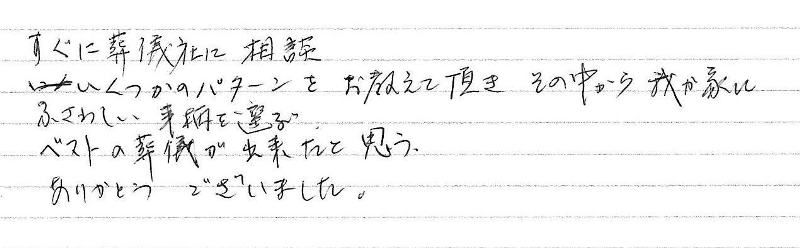 すぐに葬儀社に相談
いくつかのパターンをお教えて頂き その中から 我が家に
ふさわしい事柄を選ぶ.
ベストの葬儀が出来たと思う.
ありがとうございました。